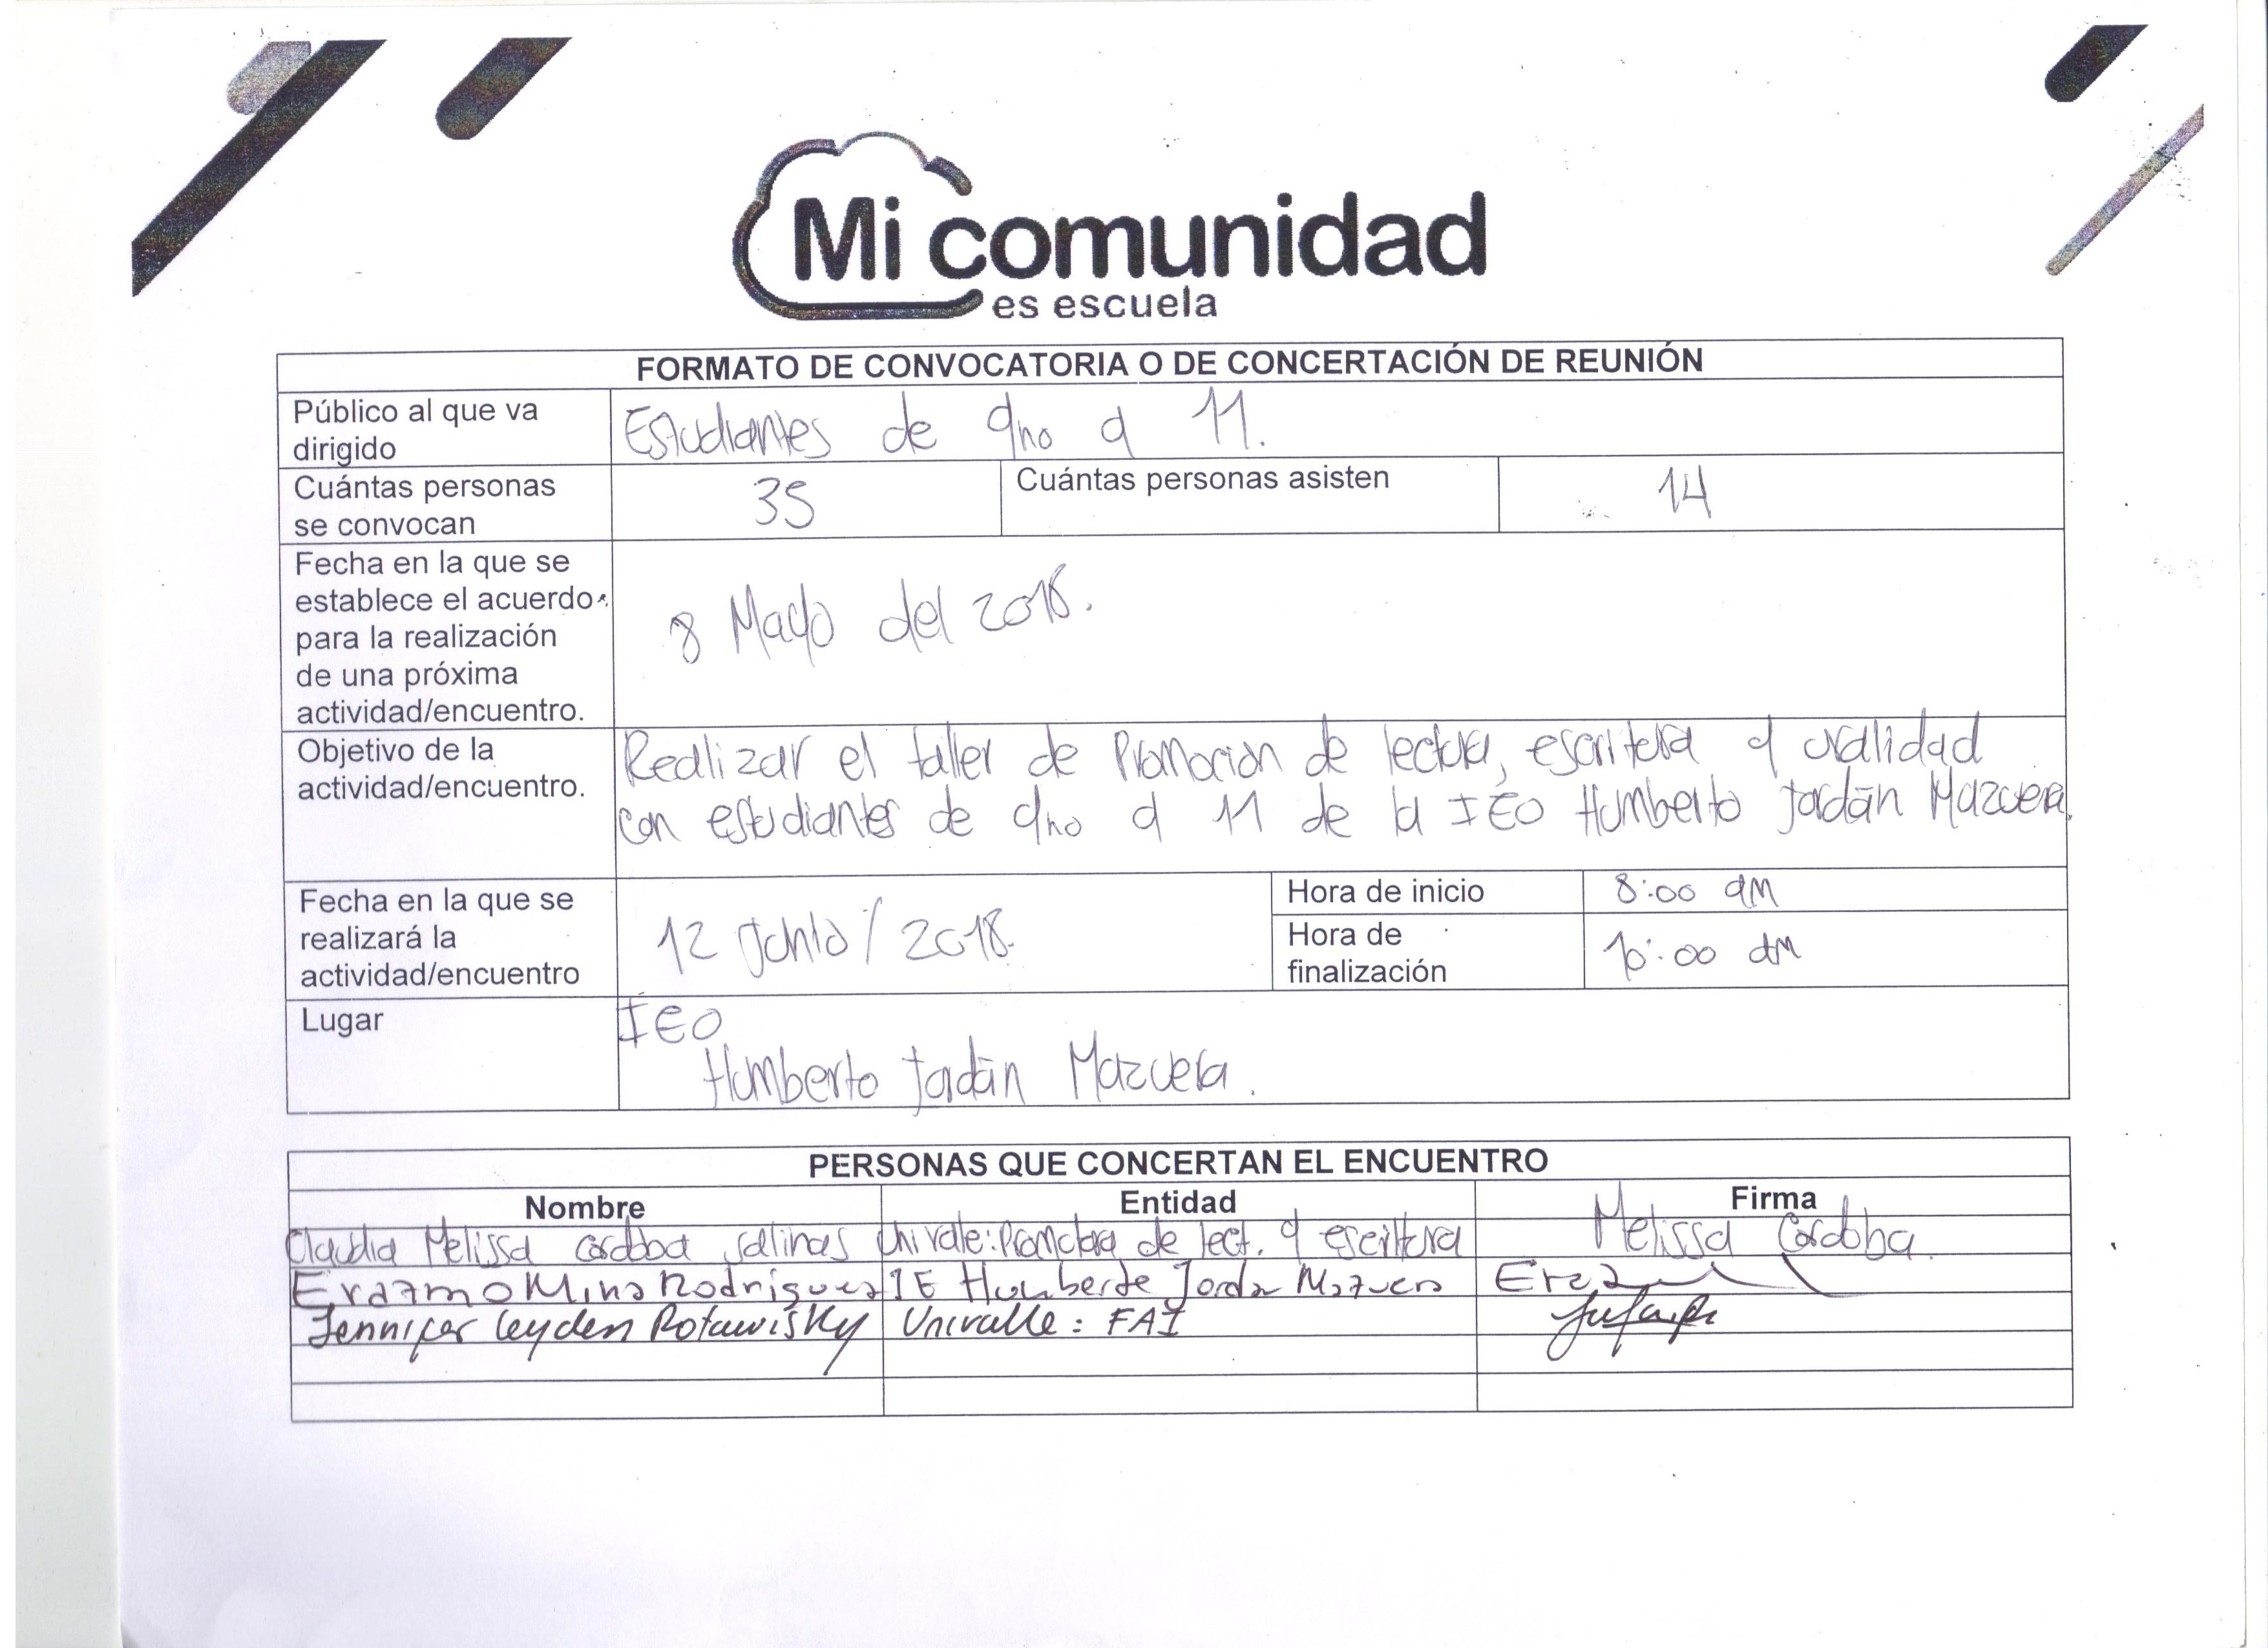 Mi comunidad
es escuela
FORMATO DE CONVOCATORIA O DE CONCERTACIÓN DE REUNIÓN
Público al que va
dirigido
Estudiantes de 9no a 11.
Cuántas personas
se convocan
35
Cuántas personas asisten
14
Fecha en la que se
establece el acuerdo
para la realización
de una próxima
actividad/encuentro.
8 Mayo del 2018.
Objetivo de la
actividad/encuentro.
Realizar el taller de Promoción de lectura, escritura y oralidad
con estudiantes de 9no a 11 de la IEO Humberto Jordán Mazuera.
Fecha en la que se
realizará la
actividad/encuentro
12 Junio / 2018.
Hora de inicio
8:00 am
Hora de
finalización
10:00 am
Lugar
IEO
Humberto Jordán Mazuera.
PERSONAS QUE CONCERTAN EL ENCUENTRO
Nombre Entidad Firma
Claudia Melissa Cordoba Salinas Univalle: Promotora de lect. y escritura Melissa Cordoba.
Erazmo Mina Rodriguez IE Humberto Jordan Mazuera
Jennifer Leyden Potawisky Univalle: FAI